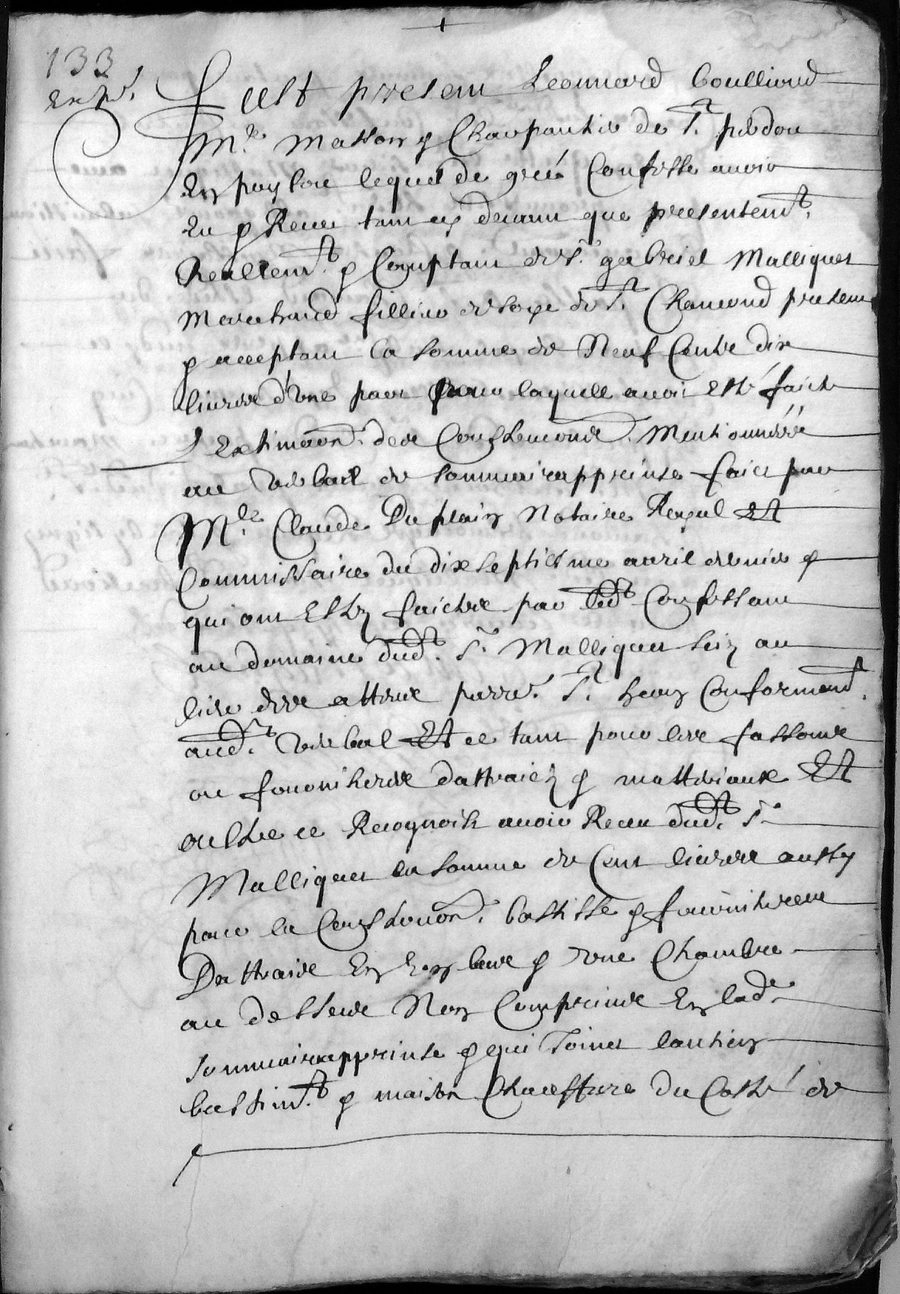 133
Exp.
Fust present Leonnard Coullioud
Me. Masson & Charpantier de St. pardou
En lequel de gré Confesse avoir
Eu & Receu tant cy devant que presentemt.
Reallemt. & Comptant de Sr. gabriel Malliquet
Marchand fillieu de soye de St. Chamond present
& acceptant La somme de Neuf Centz dix
livres d'une part pour laquelle avoit esté faicte
L'Extimaon. de Mentionnées
au verbail de sommaireapprinse faict par
Me. Claude Duplain Notaire Royal Et
Commissaire du dixseptiesme avril dernier &
qui ont Esté faictes par led. Confessant
au domaine dud. Sr. Malliquet sciz au
lieu de parre. St. Conformemt.
aud. verbal Et ce tant pour les fassons
ou fournitures dattraictz & matteriaux Et
oultre ce Recognoist avoir Receu dud. Sr.
Malliquet la somme de Cent livres aussy
pour la bastisse & fournitures
Dattraictz En & une Chambre
au dessus Non Comprinse En lade.
sommaireapprinse & qui Joinct lantien
bastimt. & maison du Costé de